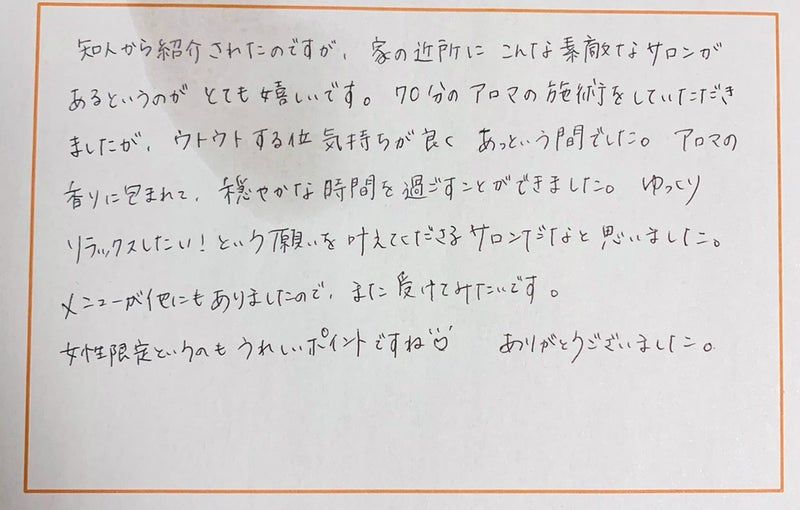 知人から紹介されたのですが、家の近所に こんな素敵なサロンが
あるというのが とても嬉しいです。70分のアロマの施術をしていただき
ましたが、ウトウトする位気持ちが良く あっという間でした。アロマの
香りに包まれて、穏やかな時間を過ごすことができました。ゆっくり
リラックスしたい！という願いを叶えてくださるサロンだなと思いました。
メニューが他にもありましたので、また受けてみたいです。
女性限定というのもうれしいポイントですね♡ ありがとうございました。